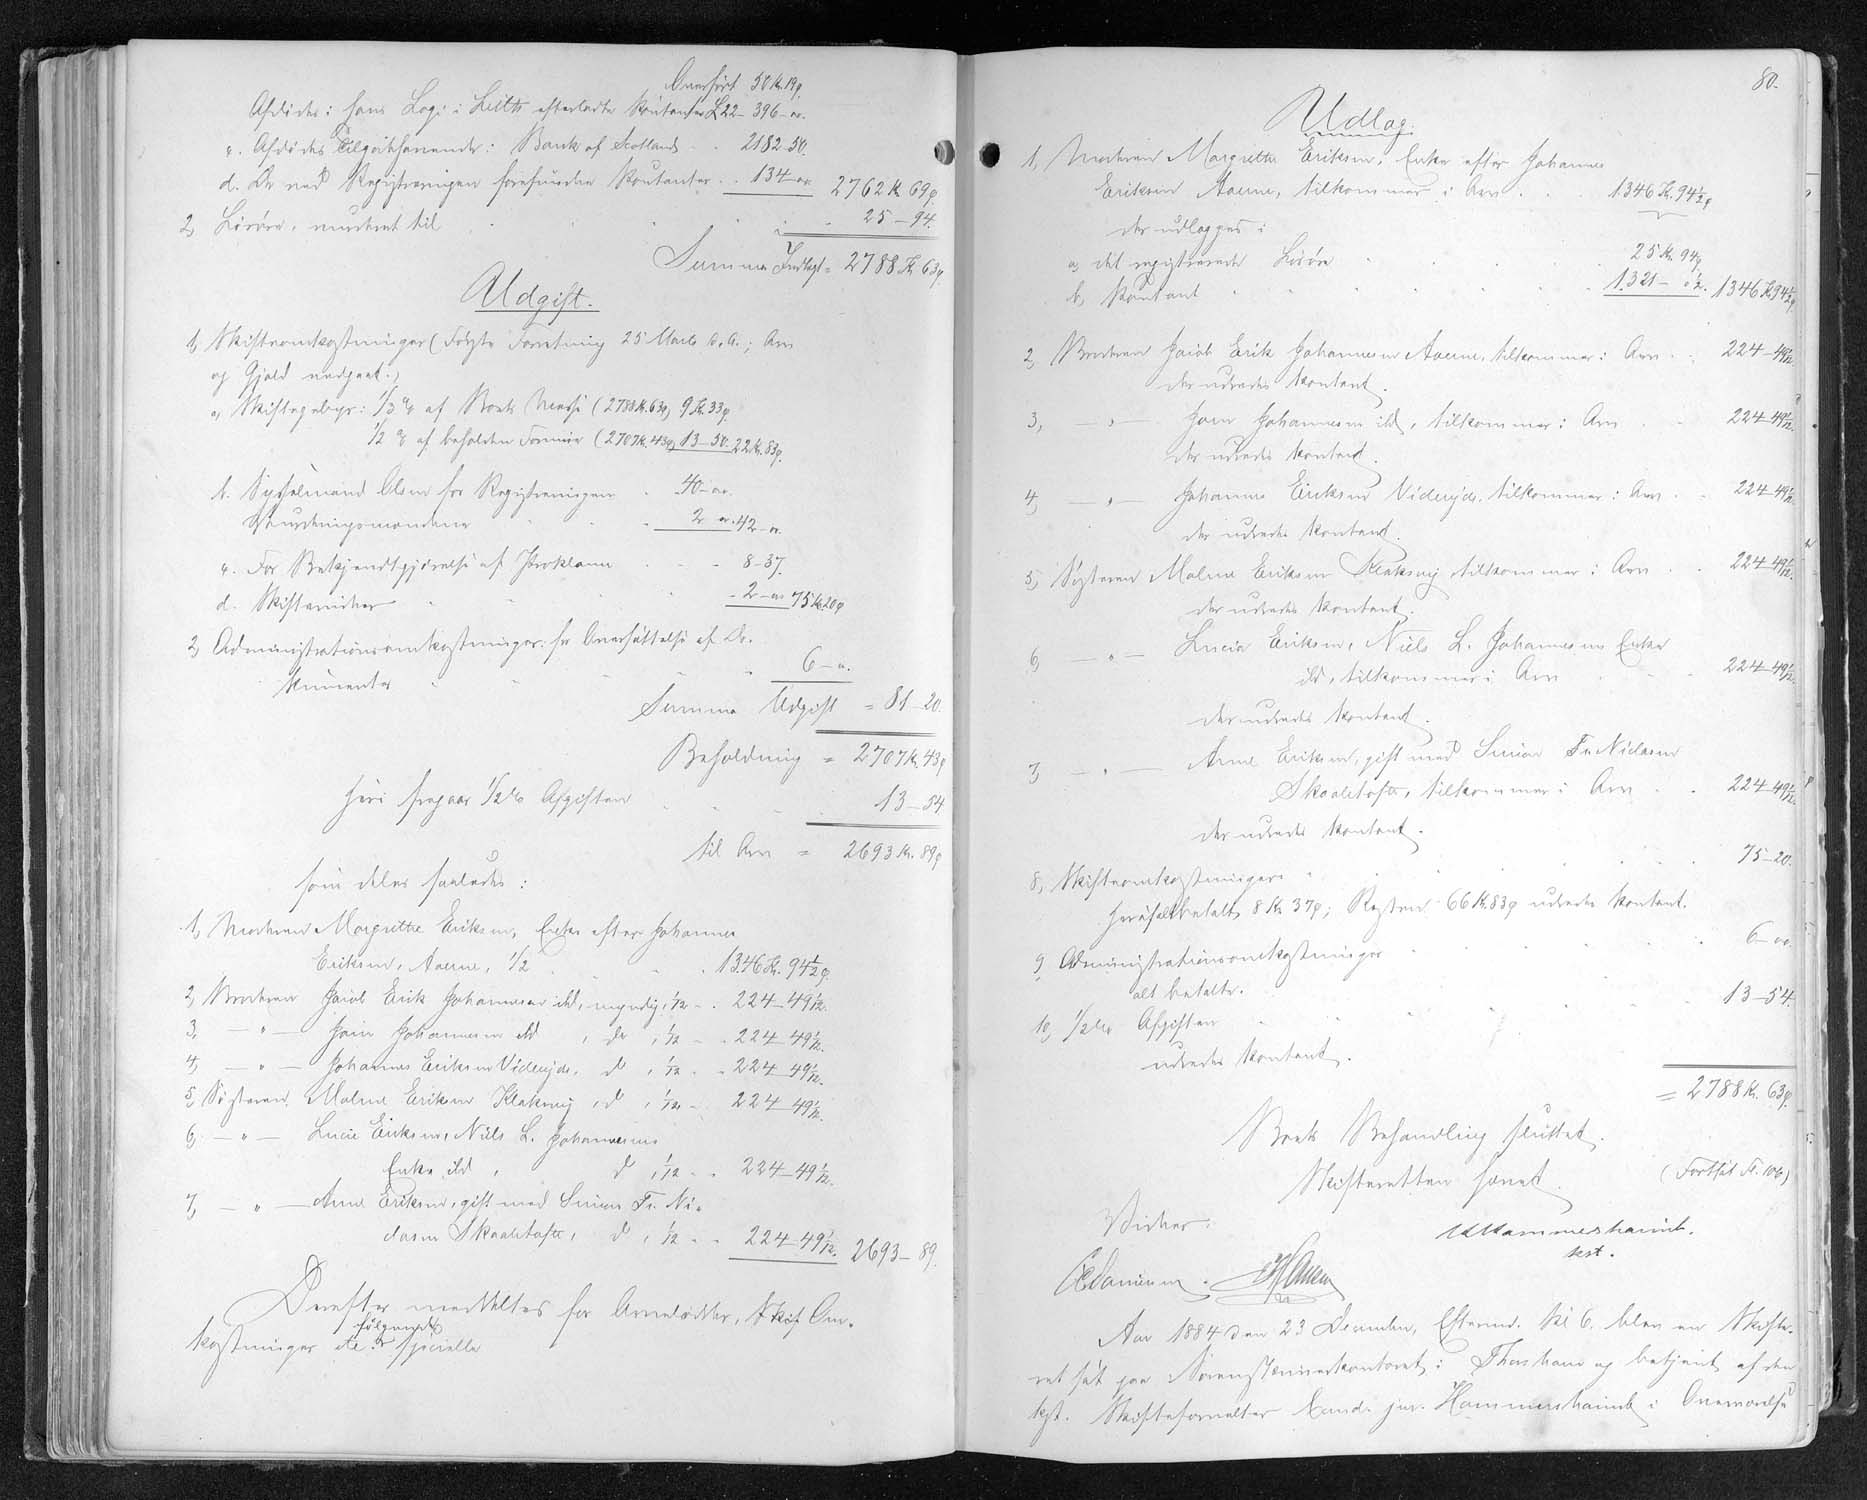 Overført 50 Kr. 19 ø.
Afdødes i hans Logi i Leith efterladte Contanter £22 - 396 - "
c. Afdødes Tilgodehavende i Bank of Scotland - - 2182-50.
d. De ved Registreringen forefundne Contanter . . 134 - " 2762 K 69 ø
2, Løsøre, vurderet til 25 - 94.
Summa Indtægt = 2788 Kr 63 ø.
Udgift.
1, Skifteomkostninger (Forretning 25 Marts d. A.; Arv
og Gjæld vedgaaet.)
a, Skiftegebyr: 1/3 % af Boets Masse (2788 K. 63 ø) 9 Kr. 33 ø.
1/2 % af beholden Formue (2707 K. 43 ø) 13-50. 22 Kr. 83 ø.
b. Sysselmand Olsen for Registreringen . 40 - "
Vurderingsmændene 2 - " 42 - "
c. For Bekjendtgjørelse af Proklama . - - 8-37.
d. Skifteviduer - 2 - " 75 Kr. 20 ø
2, Administrationsomkostninger: for Oversættelse af Do-
kumenter 6 - "
Summa Udgift = 81-20.
Beholdning = 2707 Kr. 43 ø
Heri fragaar 1/2 % Afgiften 13-54
til Arv = 2693 Kr. 89 ø
som deles saaledes:
1, Moderen Margrethe Eriksen, Enke efter Johannes
Eriksen, 1/2 . 1346 Kr. 94 1/2 ø.
2, Broderen Jacob Erik Johannesen ibd, myndig, 1/12 - . 224-49 1/12.
3, - " - Johannesen ibd , do , 1/12 - . 224-49 1/12.
4, - " - Johannes Eriksen Videreide, d , 1/12 - . 224-49 1/12.
5, Søsteren Malene Eriksen Klaksvig , d , 1/12 - 224-49 1/12.
6, - " - Lucie Eriksen, Niels L. Johannesens
Enke ibd , d , 1/12 - . 224-49 1/12.
7, - " - Anne Eriksen, gift med Simon Fr. Ni-
clasen Skaaletofte, d , 1/12 - . 224-49 1/12. 2693-89.
Derefter meddeltes for Arvelodder, Skif. Om-
kostninger etc. følgende specielle
80.
Udlæg.
1, Moderen Margrethe Eriksen, Enke efter Johannes
Eriksen, tilkommer i Arv . . 1346 Kr. 94 1/2 ø
der udlægges i
a, det registrerede Løsøre 25 Kr. 94 ø
b, Contant 1321 - " 1/2. 1346 Kr 94 1/2 ø.
2, Broderen Jacob Erik Johannesen, tilkommer i Arv . . 224-49 1/12.
der udredes kontant.
3, - " - Johannesen ibd, tilkommer i Arv . . 224-49 1/12.
der udredes kontant.
4, - " - Johannes Eriksen Videreide, tilkommer i Arv . . 224-49 1/12.
der udredes kontant.
5, Søsteren Malene Eriksen Klaksvig tilkommer i Arv . . 224-49 1/12.
der udredes kontant.
6, - " - Lucie Eriksen, Niels L. Johannesens Enke
ibd, tilkommer i Arv 224-49 1/12.
der udredes kontant.
7, - " - Anne Eriksen, gift med Simon Fr. Niclasen
Skaaletofte, tilkommer i Arv . . 224-49 1/12.
der udredes kontant.
8, Skifteomkostninger 75-20.
heraf alt betalt 8 Kr 37 ø; Resten 66 Kr. 83 ø udredes kontant.
9, Administrationsomkostninger 6 - "
alt betalte.
10, 1/2 % Afgiften 13-54.
udredes kontant.
= 2788 Kr. 63 ø.
Boets Behandling sluttet.
Skifteretten hævet. (Fortsat F. 106)
Vidner: Hammershaimb.
kst.
Danielsen.
Aar 1884 den 23 December, Efterm. Kl 6, blev en Skifte-
ret sat paa Sorenskriverkontoret i Thorshavn og betjent af den
kst. Skifteforvalter Cand. jur. Hammershaimb i Overværelse